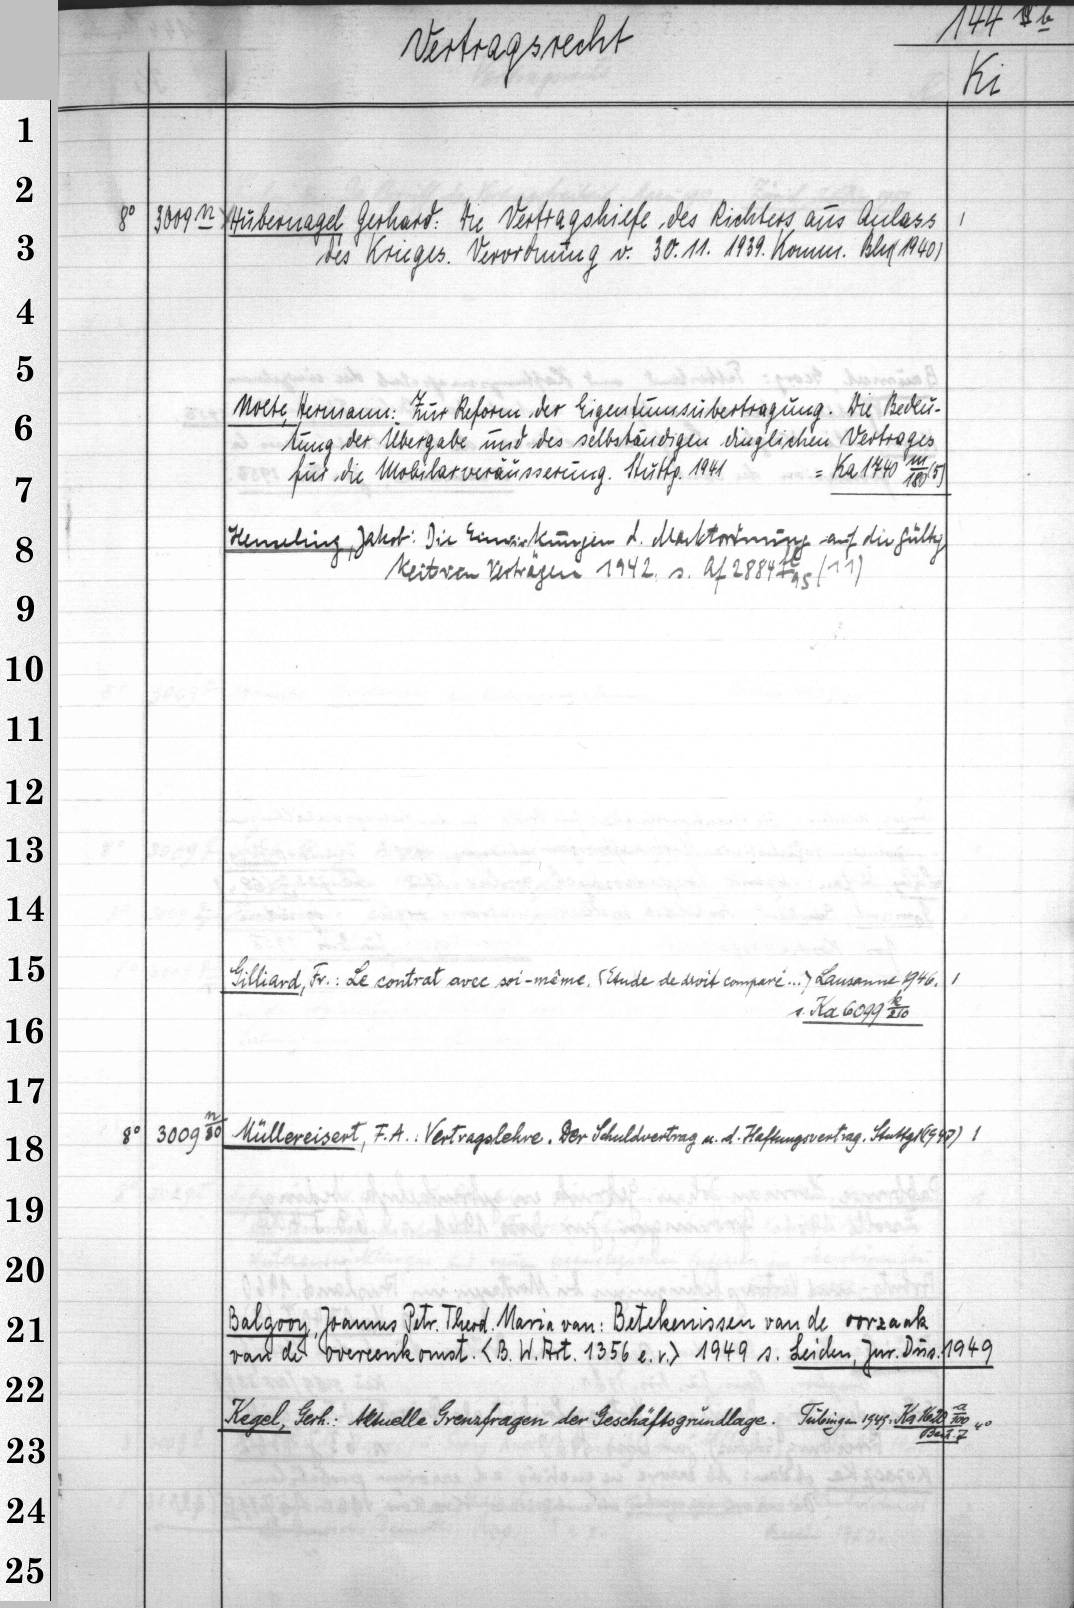 Vertragsrecht
144
Ki
1
2
8° 3009 n Hubernagel Gerhard: Die Vertragshilfe des Richters aus Anlass 1
3
des Krieges. Verordnung v. 30.11.1939. Komm. Bln (1940)
4
5
Nolte, Hermann: Zur Reform der Eigentumsübertragung. Die Bedeu-
6
tung der Übergabe und des selbständigen dinglichen Vertrages
für die Mobilarveräusserung. Stuttg. 1941 = Ka 1740 m/180 (5)
7
Hemeling, Jakob: Die Einwirkungen d. Marktordnung auf die Gültig
8
keit von Verträgen 1942. s. Af 2884 (11)
9
10
11
12
13
14
15
Gilliard, Fr.: Le contrat avec soi-même. <Etude de droit comparé...> Lausanne 1946. 1
s. Ka 6099 k/210
16
17
8° 3009 n/80 Müllereisert, F.A.: Vertragslehre. Der Schuldvertrag u. d. Haftungsvertrag. Stuttg. (1947) 1
18
19
20
Balgooy, Joannes Petr. Theod. Maria van: Betekenissen van de oorzaak
21
van de overeenkomst. <B. W. Art. 1356 e.v.> 1949 s. Leiden, Jur. Diss. 1949
22
Kegel, Gerh.: Aktuelle Grenzfragen der Geschäftsgrundlage. Tübingen 1949.
23
24
25